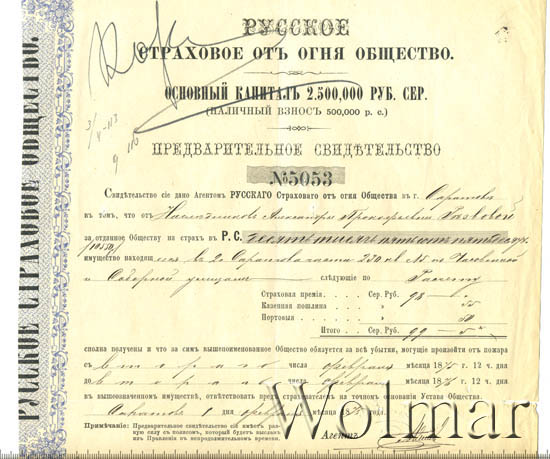 РУССКОЕ
СТРАХОВОЕ ОТЪ ОГНЯ ОБЩЕСТВО.
ОСНОВНЫЙ КАПИТАЛЪ 2.500,000 РУБ. СЕР.
(НАЛИЧНЫЙ ВЗНОСЪ 500,000 р. с.)
ПРЕДВАРИТЕЛЬНОЕ СВИДѢТЕЛЬСТВО
№5053
Свидѣтельство сіе дано Агентомъ РУССКАГО Страховаго отъ огня Общества въ г. Саратовѣ
въ томъ, что отъ Наслѣдниковъ Александры Прокофьевны
за отданное Обществу на страхъ въ Р. С. десять тысячъ пятьсотъ пятьдесятъ
(10550)
имущество находящ
и Соборной улицамъ слѣдующіе по
Страховая премія Сер. Руб. 98
Казенная пошлина " 55
Портовыя " 50
Итого Сер. Руб. 99 — 5
сполна получены и что за симъ вышепоименованное Общество обязуется за всѣ убытки, могущіе произойти отъ пожара
съ втораго числа февраля мѣсяца 18 г. 12 ч. дня
до втораго числа февраля мѣсяца 18 г. 12 ч. дня
въ вышеозначенномъ имуществѣ, отвѣтствовать предъ страхователемъ на точномъ основаніи Устава Общества.
Саратовъ 1 дня февраля мѣсяца 18 года.
Примѣчаніе: Предварительное свидѣтельство сіе имѣетъ равную силу съ полисомъ, который будетъ высланъ изъ Правленія въ непродолжительномъ времени.
Агентъ
РУССКОЕ СТРАХОВОЕ ОБЩЕСТВО.
Wolmar